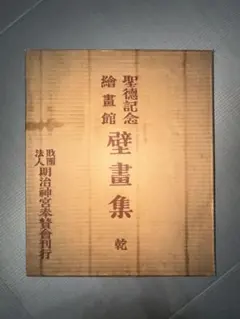 聖德記念
繪畫館
壁畫集
乾
財團
法人
明治神宮奉贊會刊行